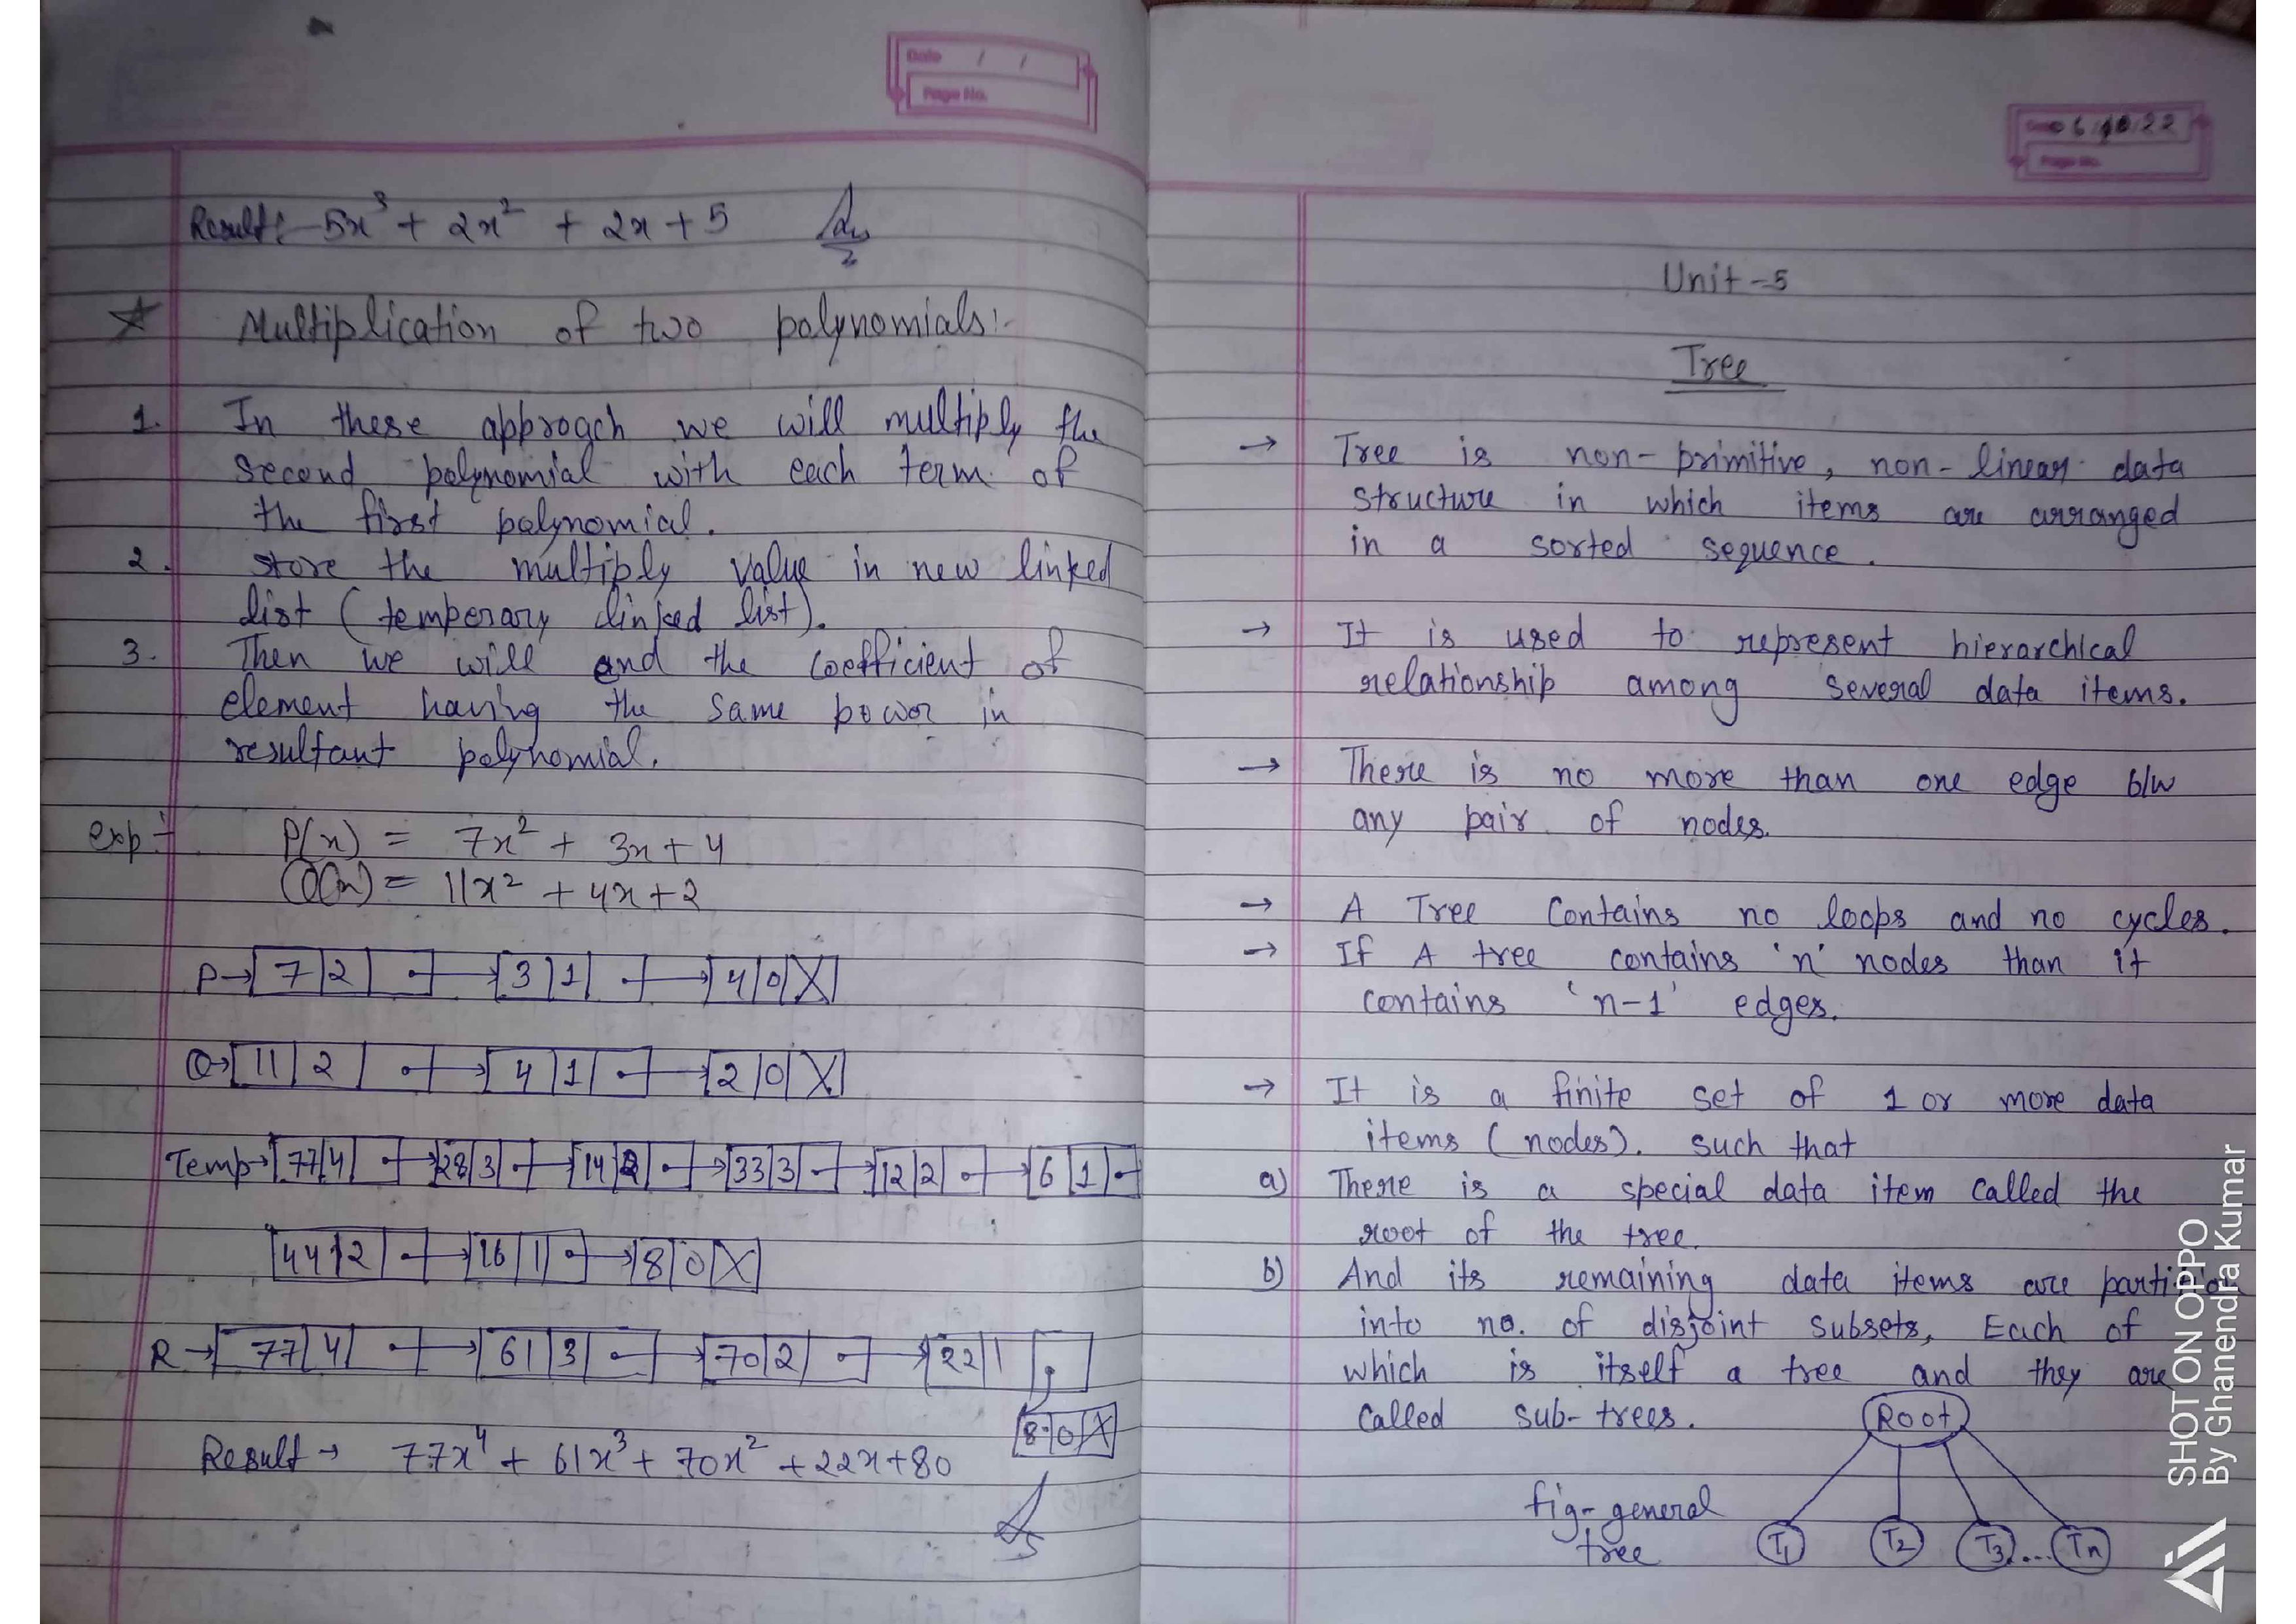 Date / /
Page No.
Result:- 5x³ + 2x² + 2x + 5 Ans
☆ Multiplication of two polynomials:-
1. In these approach we will multiply the
second polynomial with each term of
the first polynomial.
2. store the multiply value in new linked
list (temperary linked list).
3. Then we will and the coefficient of
element having the same power in
resultant polynomial.
exp:- P(x) = 7x² + 3x + 4
Q(x) = 11x² + 4x + 2
P→ 7 | 2 | •→ 3 | 1 | •→ 4 | 0 | X
Q→ 11 | 2 | •→ 4 | 1 | •→ 2 | 0 | X
Temp→ 77 | 4 | •→ 28 | 3 | •→ 14 | 2 | •→ 33 | 3 | •→ 12 | 2 | •→ 6 | 1 | •
44 | 2 | •→ 16 | 1 | •→ 8 | 0 | X
R→ 77 | 4 | •→ 61 | 3 | •→ 70 | 2 | •→ 22 | 1 | •
8 | 0 | X
Result → 77x⁴ + 61x³ + 70x² + 22x + 80
06/10/22
Page No.
Unit-5
Tree
→ Tree is non-primitive, non-linear data
structure in which items are arranged
in a sorted sequence.
→ It is used to represent hierarchical
relationship among several data items.
→ There is no more than one edge b/w
any pair of nodes.
→ A Tree Contains no loops and no cycles.
→ If A tree contains 'n' nodes than it
contains 'n-1' edges.
→ It is a finite set of 1 or more data
items (nodes). such that
a) There is a special data item called the
root of the tree.
b) And its remaining data items are partition
into no. of disjoint subsets, Each of
which is itself a tree and they are
called sub-trees.
Root
fig- general
tree
T1 T2 T3 .... Tn
SHOT ON OPPO
By Ghanendra Kumar